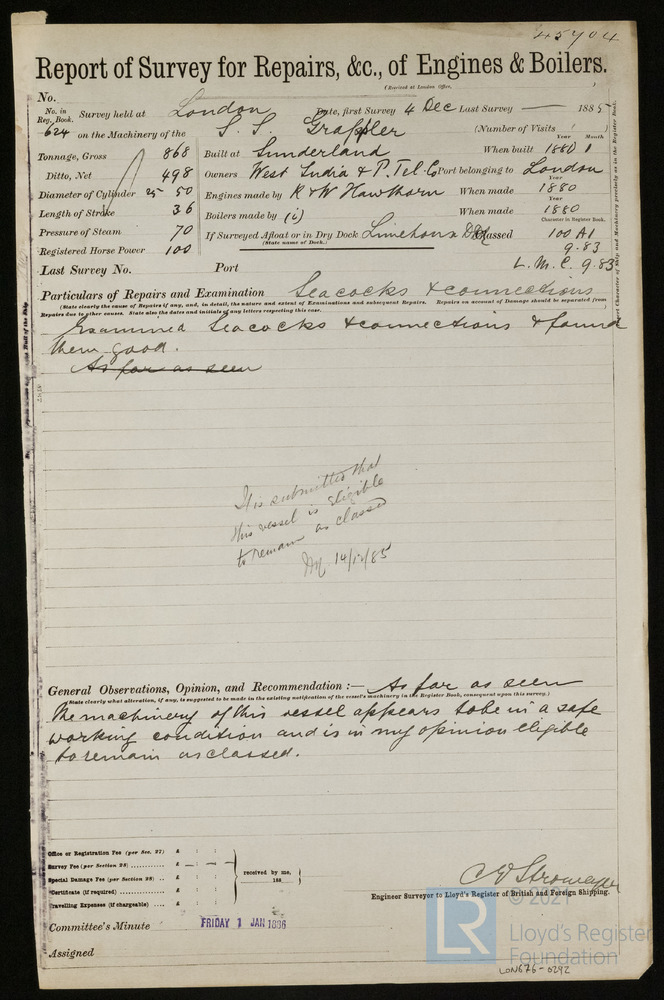 45704
Report of Survey for Repairs, &c., of Engines & Boilers.
(Received at London Office,
No.
No. in Reg. Book. Survey held at London Date, first Survey 4 Dec Last Survey — 1885
624 on the Machinery of the S. S. Grappler (Number of Visits )
Year Month
Tonnage, Gross 868 Built at Sunderland When built 1880 1
Ditto, Net 498 Owners West India & P. Tel. Co Port belonging to London
Year
Diameter of Cylinder 25 50 Engines made by R & W Hawthorn When made 1880
Year
Length of Stroke 36 Boilers made by (i) When made 1880
Character in Register Book.
Pressure of Steam 70 If Surveyed Afloat or in Dry Dock Limehouse D Dk Classed 100 A1
(State name of Dock.)
Registered Horse Power 100 9.83
Last Survey No. Port L. M. C. 9.83
Particulars of Repairs and Examination Seacocks & connections
(State clearly the cause of Repairs if any, and, in detail, the nature and extent of Examinations and subsequent Repairs. Repairs on account of Damage should be separated from
Repairs due to other causes. State also the dates and initials of any letters respecting this case.
Examined seacocks & connections & found
them good.
As far as seen
It is submitted that
this vessel is eligible
to remain as classed
14/12/85
General Observations, Opinion, and Recommendation :— As far as seen
(State clearly what alteration, if any, is suggested to be made in the existing notification of the vessel's machinery in the Register Book, consequent upon this survey.)
the machinery of this vessel appears to be in a safe
working condition and is in my opinion eligible
to remain as classed.
Office or Registration Fee (per Sec. 27) £ : :
Survey Fee (per Section 28) £ - : - :
Special Damage Fee (per Section 28) £ : :
Certificate (if required) £ : :
Travelling Expenses (if chargeable) £ : :
received by me,
188
C E Stromeyer
Engineer Surveyor to Lloyd's Register of British and Foreign Shipping.
Committee's Minute FRIDAY 1 JAN 1886
Assigned
LR © 2021
Lloyd's Register
Foundation
LON676-0292